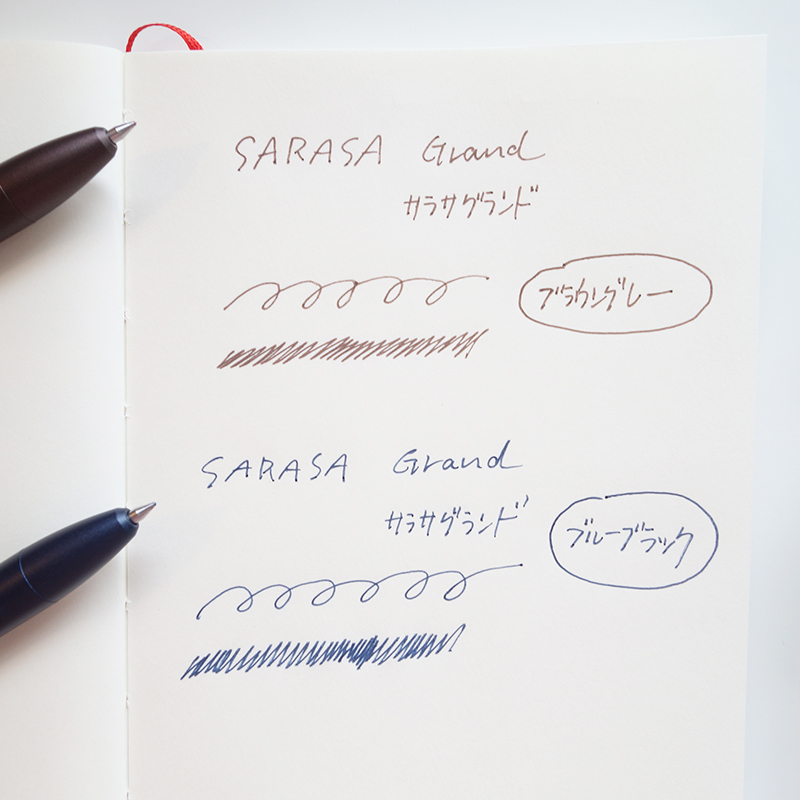 SARASA Grand
サラサグランド
ブラウングレー
SARASA Grand
サラサグランド
ブルーブラック